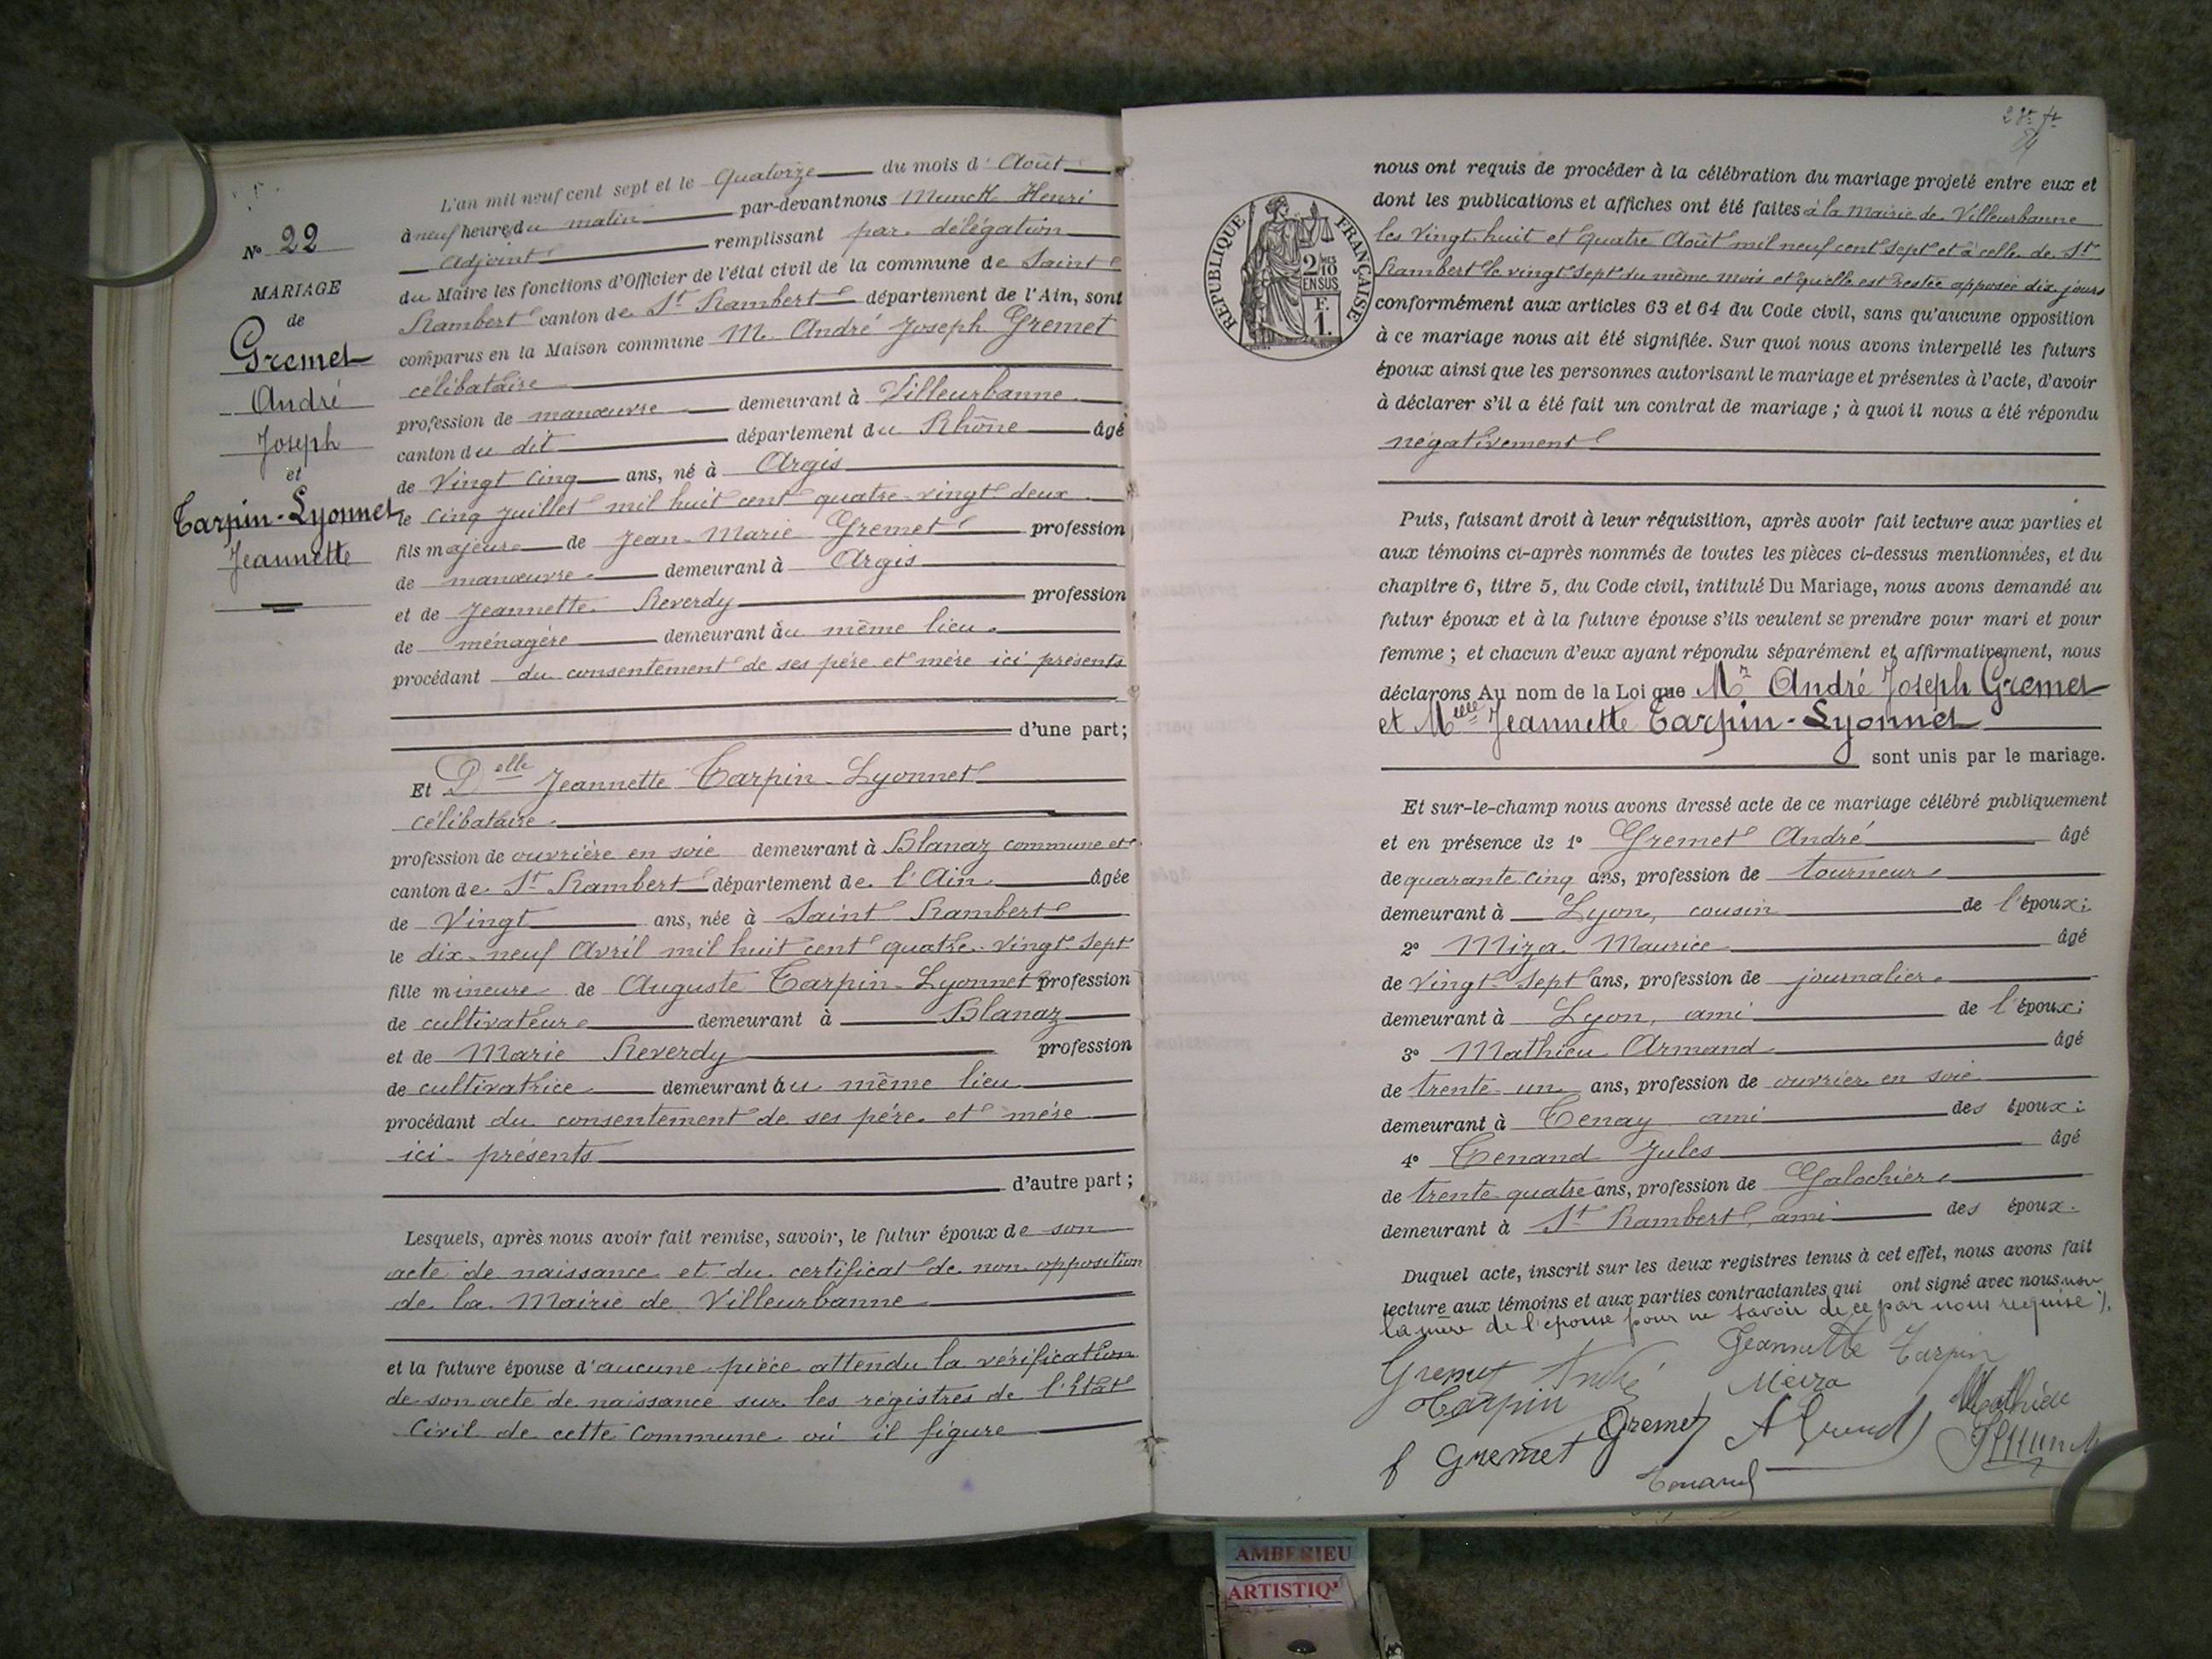 N° 22
MARIAGE
de
Gremet
André
Joseph
et
Tarpin-Lyonnet
Jeannette
L'an mil neuf cent sept et le quatorze du mois d' Août
à neuf heures du matin par-devant nous Munck Henri
adjoint remplissant par délégation
du Maire les fonctions d'Officier de l'état civil de la commune de Saint
Rambert canton de St Rambert département de l'Ain, sont
comparus en la Maison commune M. André Joseph Gremet
célibataire
profession de manœuvre demeurant à Villeurbanne
canton du dit département du Rhône âgé
de Vingt cinq ans, né à Argis
le cinq Juillet mil huit cent quatre-vingt deux
fils majeur de Jean-Marie Gremet profession
de manœuvre demeurant à Argis
et de Jeannette Reverdy profession
de ménagère demeurant au même lieu
procédant du consentement de ses père et mère ici présents
d'une part;
Et Delle Jeannette Tarpin-Lyonnet
célibataire
profession de ouvrière en soie demeurant à Blanaz commune et
canton de St Rambert département de l'Ain âgée
de Vingt ans, née à Saint Rambert
le dix-neuf Avril mil huit cent quatre-vingt-sept
fille mineure de Auguste Tarpin-Lyonnet profession
de cultivateur demeurant à Blanaz
et de Marie Reverdy profession
de cultivatrice demeurant au même lieu
procédant du consentement de ses père et mère
ici présents
d'autre part;
Lesquels, après nous avoir fait remise, savoir, le futur époux de son
acte de naissance et du certificat de non opposition
de la Mairie de Villeurbanne
et la future épouse d'aucune pièce attendu la vérification
de son acte de naissance sur les régistres de l'Etat
Civil de cette Commune où il figure
nous ont requis de procéder à la célébration du mariage projeté entre eux et
dont les publications et affiches ont été faites à la Mairie de Villeurbanne
les Vingt-huit et quatre Août mil neuf cent sept et à celle de St
Rambert le vingt sept du même mois et qu'elle est restée apposée dix jours
REPUBLIQUE FRANÇAISE
2/10 MES
EN SUS
F.
1.
conformément aux articles 63 et 64 du Code civil, sans qu'aucune opposition
à ce mariage nous ait été signifiée. Sur quoi nous avons interpellé les futurs
époux ainsi que les personnes autorisant le mariage et présentes à l'acte, d'avoir
à déclarer s'il a été fait un contrat de mariage ; à quoi il nous a été répondu
négativement
Puis, faisant droit à leur réquisition, après avoir fait lecture aux parties et
aux témoins ci-après nommés de toutes les pièces ci-dessus mentionnées, et du
chapitre 6, titre 5, du Code civil, intitulé Du Mariage, nous avons demandé au
futur époux et à la future épouse s'ils veulent se prendre pour mari et pour
femme ; et chacun d'eux ayant répondu séparément et affirmativement, nous
déclarons Au nom de la Loi que Mr André Joseph Gremet
et Melle Jeannette Tarpin-Lyonnet
sont unis par le mariage.
Et sur-le-champ nous avons dressé acte de ce mariage célébré publiquement
et en présence de 1° Gremet André âgé
de quarante cinq ans, profession de tourneur
demeurant à Lyon, cousin de l'époux;
2° Miza Maurice âgé
de Vingt-sept ans, profession de journalier
demeurant à Lyon, ami de l'époux;
3° Mathieu Armand âgé
de trente-un ans, profession de ouvrier en soie
demeurant à Tenay ami des époux;
4° Tenand Jules âgé
de trente-quatre ans, profession de Galochier
demeurant à St Rambert, ami des époux.
Duquel acte, inscrit sur les deux registres tenus à cet effet, nous avons fait
lecture aux témoins et aux parties contractantes qui ont signé avec nous non
la mère de l'épouse pour ne savoir de ce par nous requise
Gremet André Jeannette Tarpin
Tarpin Meiza Mathieu
f Gremet Gremet
Tenand
AMBERIEU
ARTISTIQ'